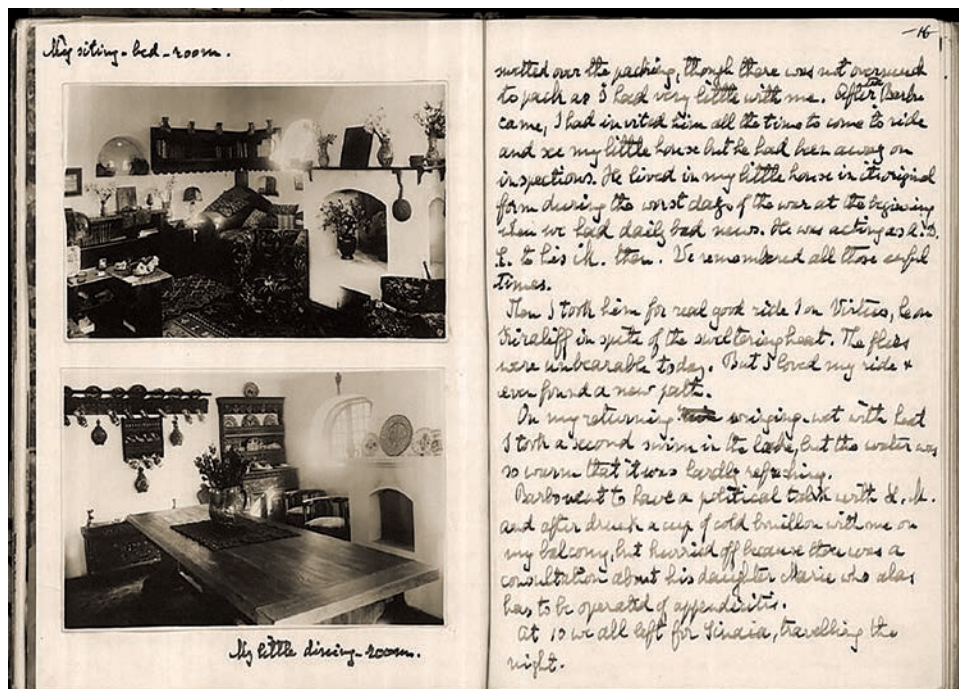 My siting-bed-room.
My little dining-room.
-16
over the packing, though there was not overmuch
to pack as I had very little with me. After Barbo
came, I had invited him all the time to come to ride
and see my little house but he had been away on
inspections. He lived in my little house in its original
form during the worst days of the war at the beginning
when we had daily bad news. He was acting as A. D.
C. to his M. then. We remembered all those awful
times.
Then I took him for real good ride I on Virtus, he on
in spite of the sweltering heat. The flies
were unbearable today. But I loved my ride &
even found a new path.
On my returning wringing-wet with heat
I took a second swim in the lake, but the water was
so warm that it was hardly refreshing.
Barbo went to have a political talk with H. M.
and after drank a cup of cold bouillon with me on
my balcony, but hurried off because there was a
consultation about his daughter Marie who alas
has to be operated of appendicitis.
At 10 we all left for Sinaia, travelling the
night.